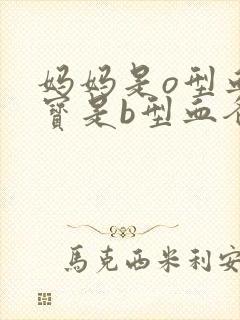 妈妈是o型血
寳是b型血爸
馬克西米利安